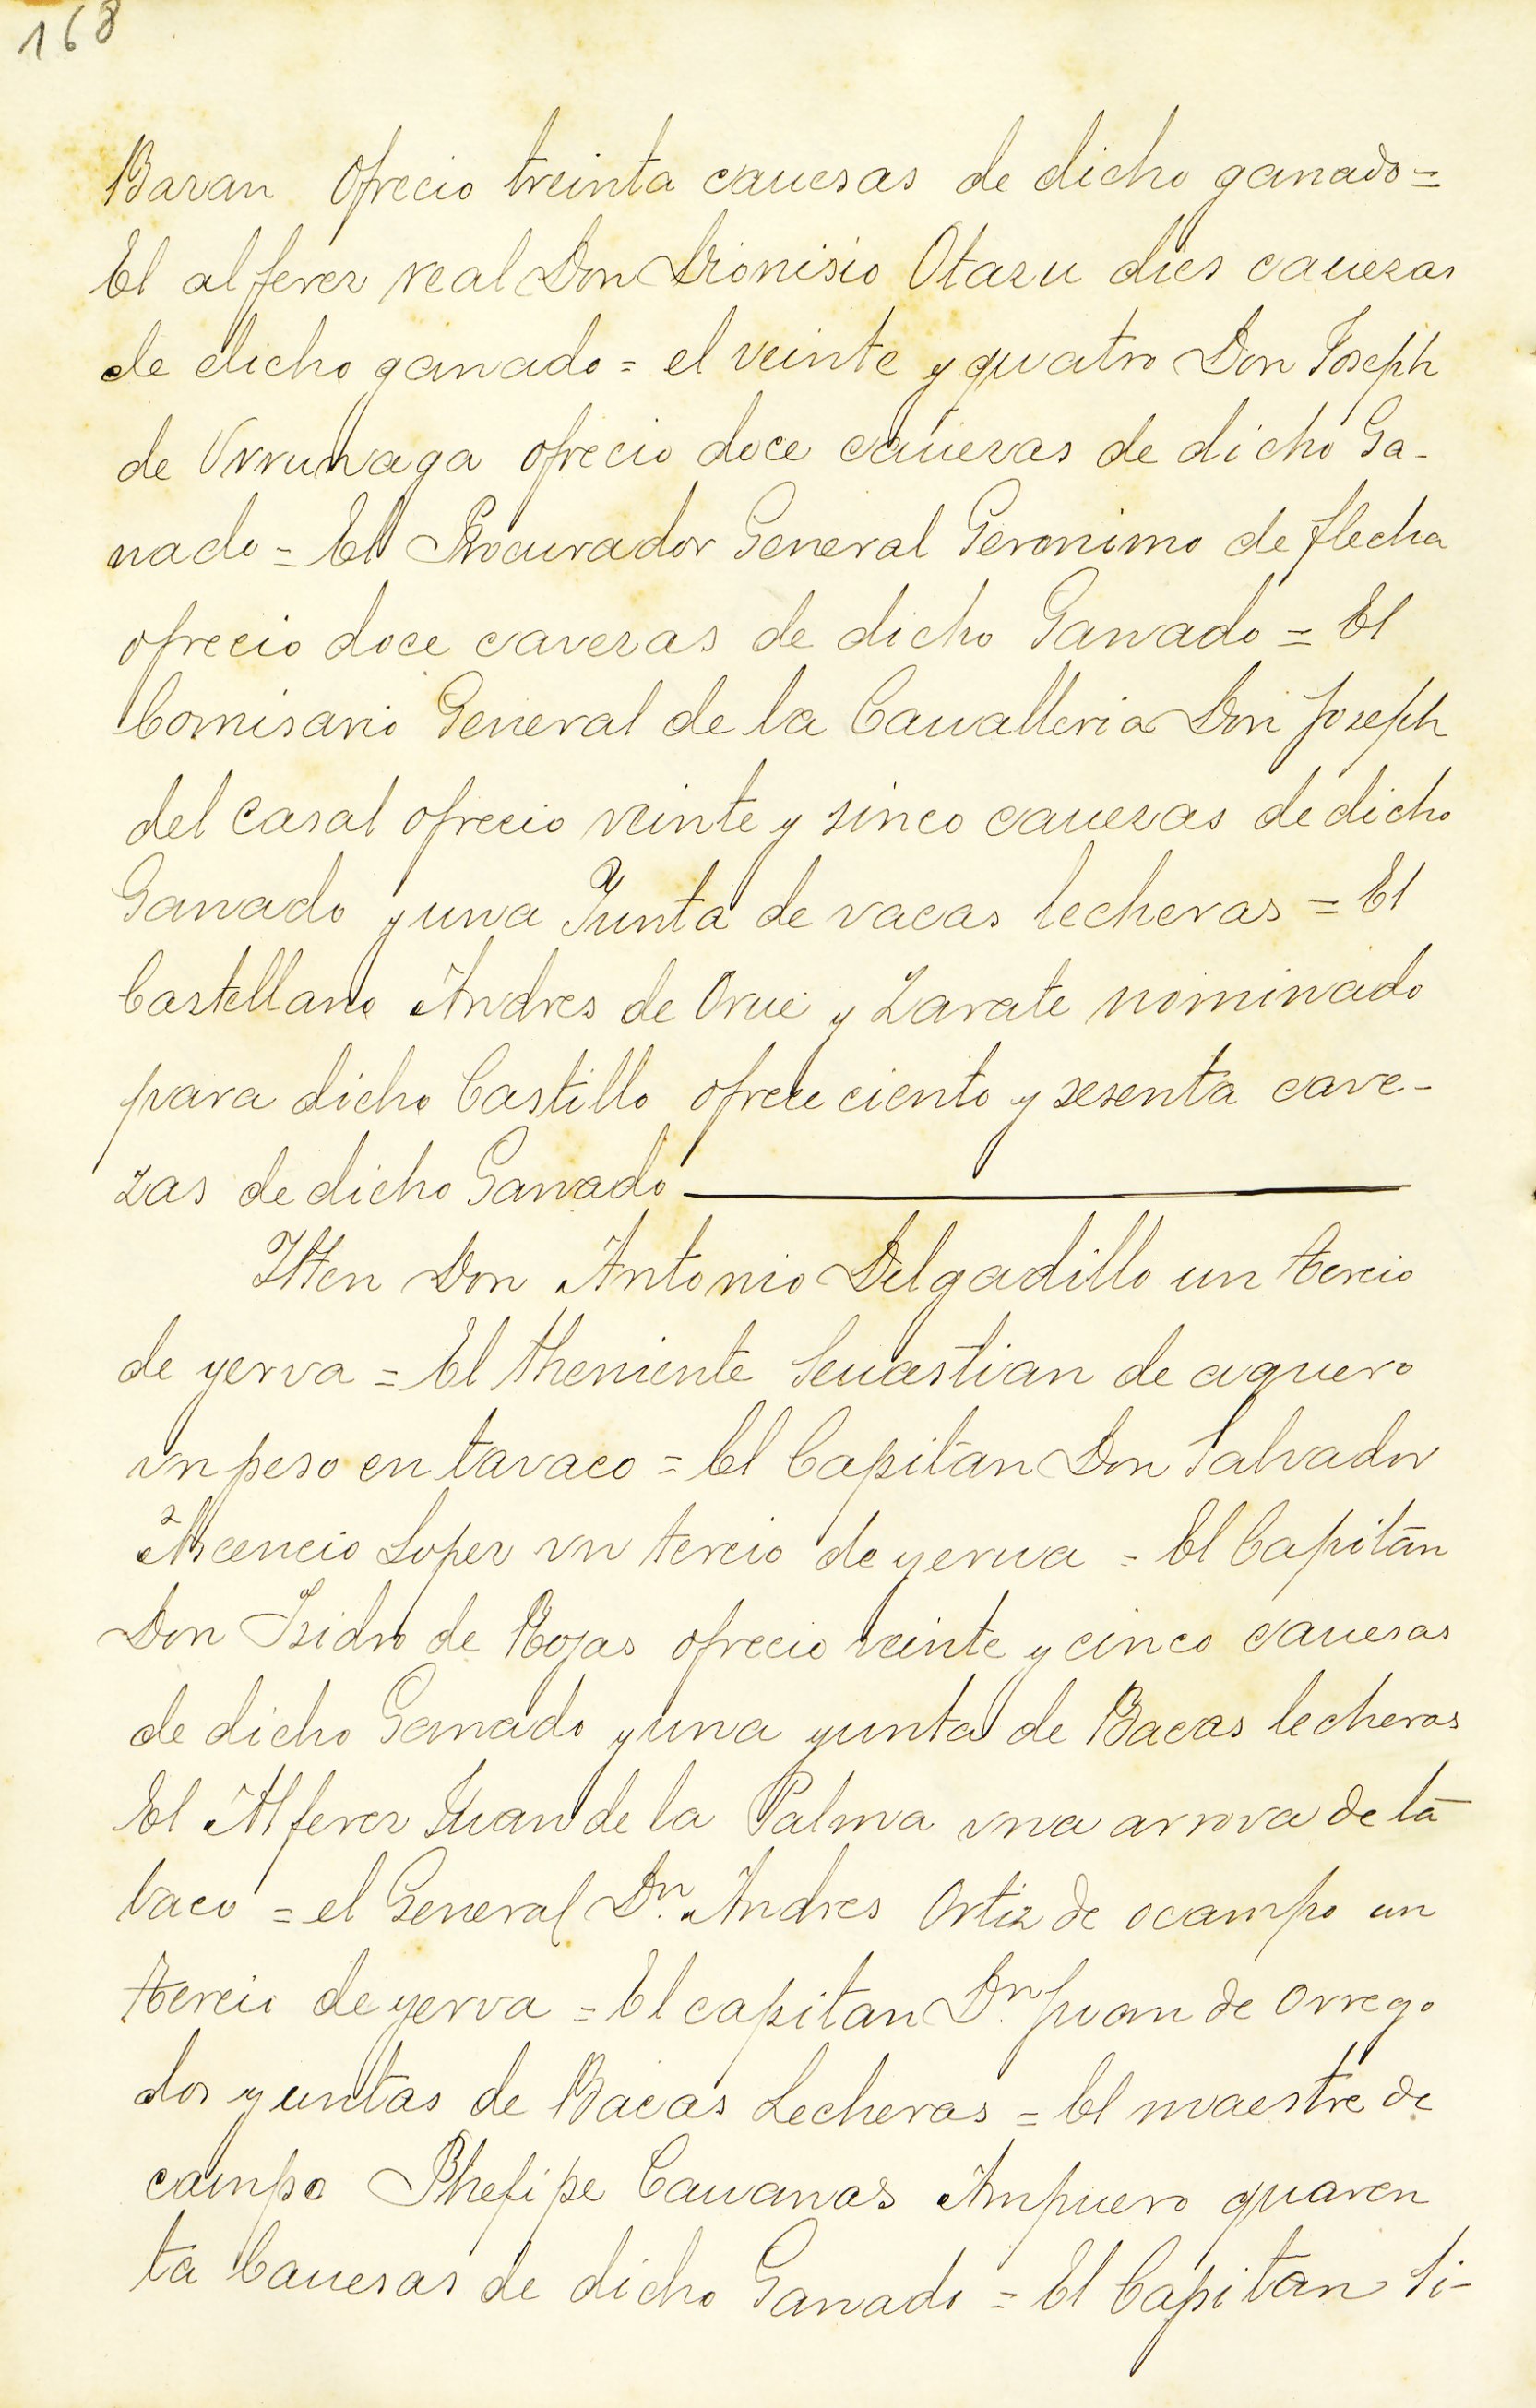 168
Bazan Ofrecio treinta cauesas de dicho ganado =
El alferez real Don Dionisio Otazu dies cauezas
de dicho ganado = el veinte y quatro Don Joseph
de Vrrunaga ofrecio doce cauezas de dicho Ga-
nado = El Procurador General Geronimo de flecha
ofrecio doce cavezas de dicho Ganado = El
Comisario General de la Caualleria Don Joseph
del Casal ofrecio veinte y sinco cauezas de dicho
Ganado y una Yunta de vacas lecheras = El
Castellano Andres de Orue y Zarate nominado
para dicho Castillo ofrece ciento y sesenta cave-
zas de dicho Ganado
Itten Don Antonio Delgadillo un tercio
de yerva = El theniente Seuastian de aquero
vn peso en tavaco = El Capitan Don Salvador
Lopez vn tercio de yerua = El Capitan
Don Isidro de Rojas ofrecio veinte y cinco cauesas
de dicho Ganado y una yunta de Bacas lecheras
El Alferez Juan de la Palma vna arrova de ta
vaco = el General Dn. Andres Ortiz de ocampo un
tercio de yerva = El capitan Dn. Juan de Orrego
dos yuntas de Bacas Lecheras = El maestre de
campo Phelipe Cauanas Ampuero quaren
ta Cauesas de dicho Ganado = El Capitan Si-